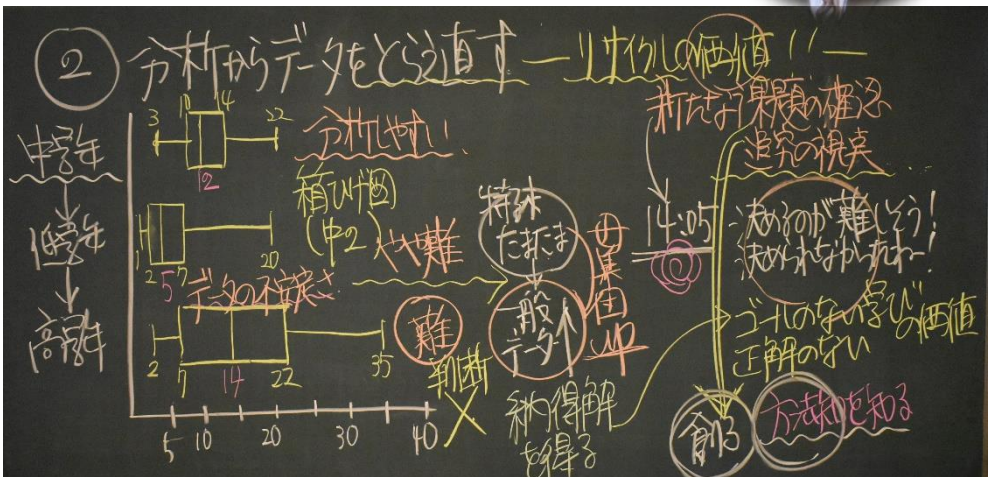 ② 分析からデータをとらえ直す ― リサイクルの価値!! ―
中学年
低学年
高学年
3 10 14 22
12
分析しやすい
箱ひげ図
(中2)
1 2 5 7 20
やや難
データの不安定さ
2 7 14 22 35
難
判断
×
5 10 20 30 40
特殊
たまたま
一般
データ个
母集団
UP
納得解
を得る
新たな課題の確認
追究の視実
14:05
決めるのが難しそう!
決められなかったね…!
ゴールのない学びの価値
正解のない
創る
方法知を知る